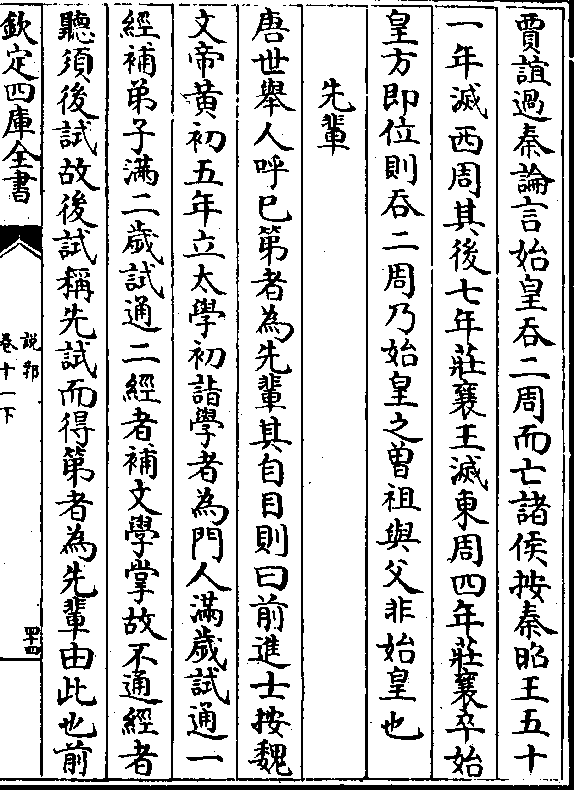 賈誼過秦論言始皇吞二周而亡諸侯按秦昭王五十
一年滅西周其後七年莊襄王滅東周四年莊襄卒始
皇方即位則吞二周乃始皇之曾祖與父非始皇也
先輩
唐世舉人呼已第者為先輩其自目則曰前進士按魏
文帝黃初五年立太學初詣學者為門人滿歲試通一
經補弟子滿二歲試通二經者補文學掌故不通經者
聽須後試故後試稱先試而得第者為先輩由此也前
欽定四庫全書
說郛
卷十一下
四十四